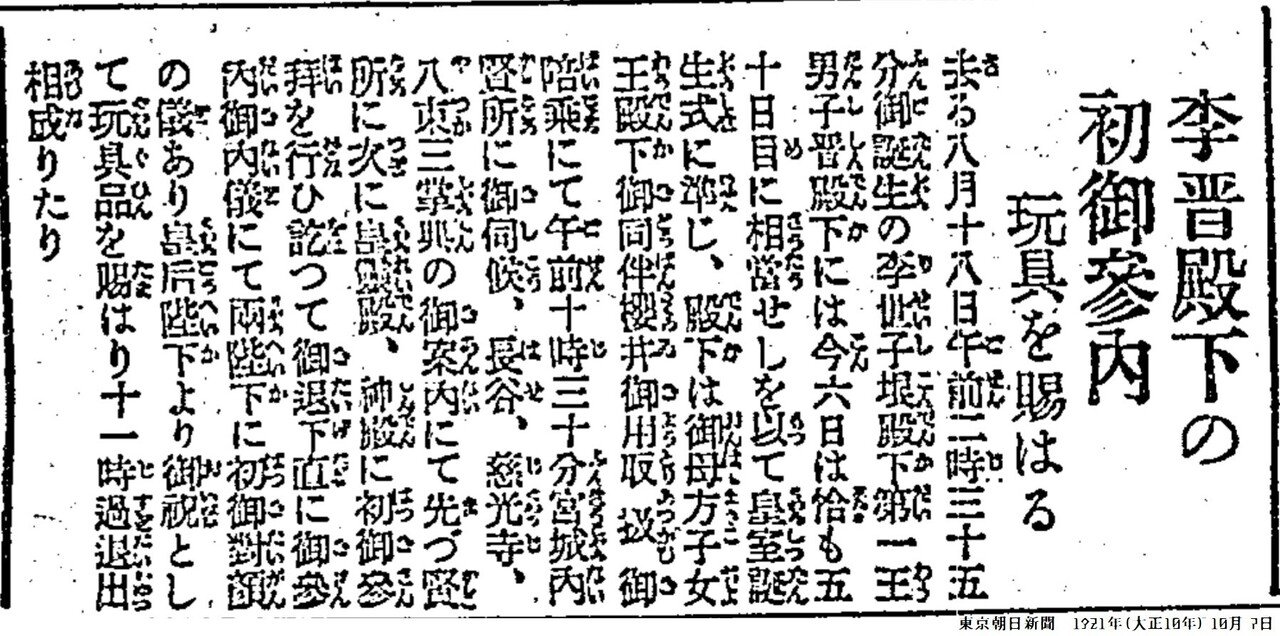 李晋殿下の
初御參內
玩具を賜はる
去る八月十八日午前二時三十五
分御誕生の李世子垠殿下第一王
男子晋殿下には今六日は恰も五
十日目に相當せしを以て皇室誕
生式に準じ、殿下は御母方子女
王殿下御同伴櫻井御用取扱御
陪乘にて午前十時三十分宮城內
賢所に御伺候、長谷、慈光寺、
八束三掌典の御案內にて先づ賢
所に次に皇靈殿、神殿に初御參
拜を行ひ訖つて御退下直に御參
內御內儀にて兩陛下に初御對顏
の儀あり皇后陛下より御祝とし
て玩具品を賜はり十一時過退出
相成りたり
東京朝日新聞 1921年(大正10年) 10月 7日